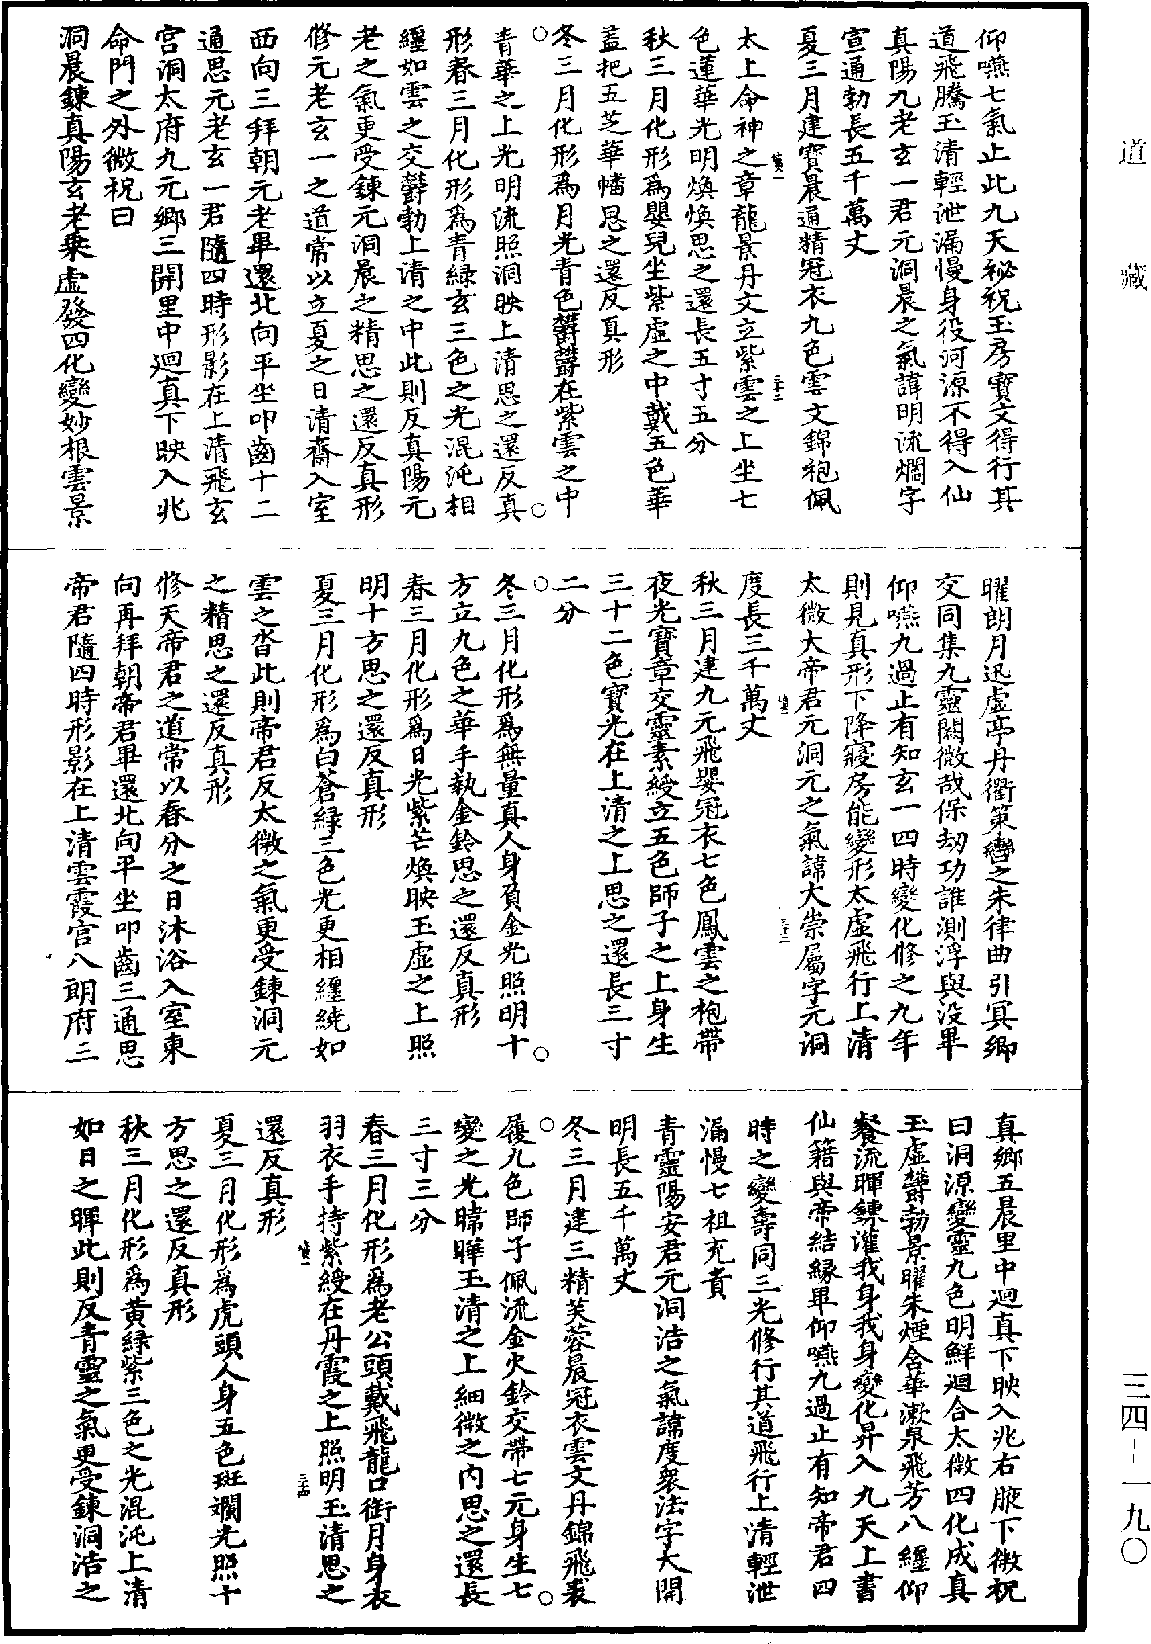 仰嚥七氣止此九天祕祝玉房寶文得行其
道飛騰玉清輕泄漏慢身役河源不得入仙
真陽九老玄一君元洞晨之氣諱明流爛字
宣通勃長五千萬丈
夏三月建寶晨通精冠衣九色雲文錦袍佩
太上命神之章龍景丹文立紫雲之上坐七
色蓮華光明煥煥思之還長五寸五分
秋三月化形為嬰兒坐紫虛之中戴五色華
蓋把五芝華幡思之還反真形
冬三月化形為月光青色鬱鬱在紫雲之中
青華之上光明流照洞映上清思之還反真
形春三月化形為青綠玄三色之光混沌相
纏如雲之交鬱勃上清之中此則反真陽元
老之氣更受鍊元洞晨之精思之還反真形
修元老玄一之道常以立夏之日清齋入室
西向三拜朝元老畢還北向平坐叩齒十二
通思元老玄一君隨四時形影在上清飛玄
宮洞太府九元鄉三開里中迴真下映入兆
命門之外微祝曰
洞晨鍊真陽玄老乘虛發四化變妙根雲景
曜朗月迅虛亭丹衢策轡之朱律曲引冥鄉
交同集九靈闕微哉保劫功誰測浮與沒畢
仰嚥九過止有知玄一四時變化修之九年
則見真形下降寢房能變形太虛飛行上清
太微大帝君元洞元之氣諱大崇屬字元洞
度長三千萬丈
秋三月建九元飛嬰冠衣七色鳳雲之袍帶
夜光寶章交靈素綬立五色師子之上身生
三十二色寶光在上清之上思之還長三寸
二分
冬三月化形為無量真人身負金光照明十
方立九色之華手執金鈴思之還反真形
春三月化形為日光紫芒煥映玉虛之上照
明十方思之還反真形
夏三月化形為白蒼綠三色光更相纏繞如
雲之沓此則帝君反太微之氣更受鍊洞元
之精思之還反真形
修天帝君之道常以春分之日沐浴入室東
向再拜朝帝君畢還北向平坐叩齒三通思
帝君隨四時形影在上清雲霞宮八朗府三
真鄉五晨里中迴真下映入兆右腋下微祝
曰洞源變靈九色明鮮迴合太微四化成真
玉虛鬱勃景曜朱煙含華漱泉飛芳八纏仰
餐流暉鍊灌我身我身變化昇入九天上書
仙籍與帝結緣畢仰嚥九過止有知帝君四
時之變壽同三光修行其道飛行上清輕泄
漏慢七祖充責
青靈陽安君元洞洁之氣諱度衆法字大開
明長五千萬丈
冬三月建三精芙蓉晨冠衣雲文丹錦飛裘
履九色師子佩流金火鈴交帶七元身生七
變之光暐曄玉清之上細微之內思之還長
三寸三分
春三月化形為老公頭戴飛龍口銜月身衣
羽衣手持紫綬在丹霞之上照明玉清思之
還反真形
夏三月化形為虎頭人身五色斑斕光照十
方思之還反真形
秋三月化形為黃綠紫三色之光混沌上清
如日之暉此則反青靈之氣更受鍊洞洁之
道藏
三四-一九〇